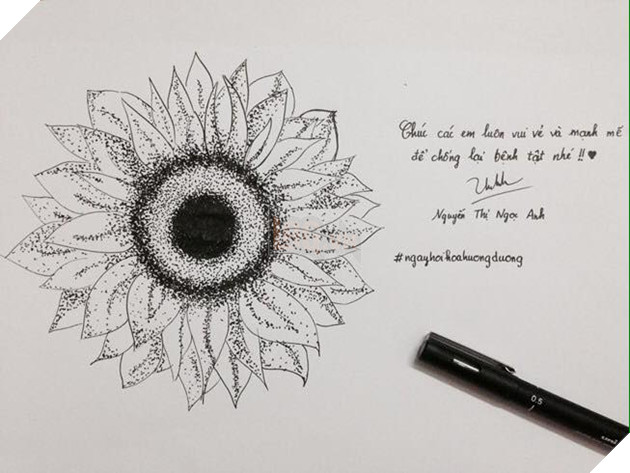 Chúc các em luôn vui vẻ và mạnh mẽ
để chống lại bệnh tật nhé !! ♥
Nguyễn Thị Ngọc Anh
#ngayhoihoahuongduong
0.5